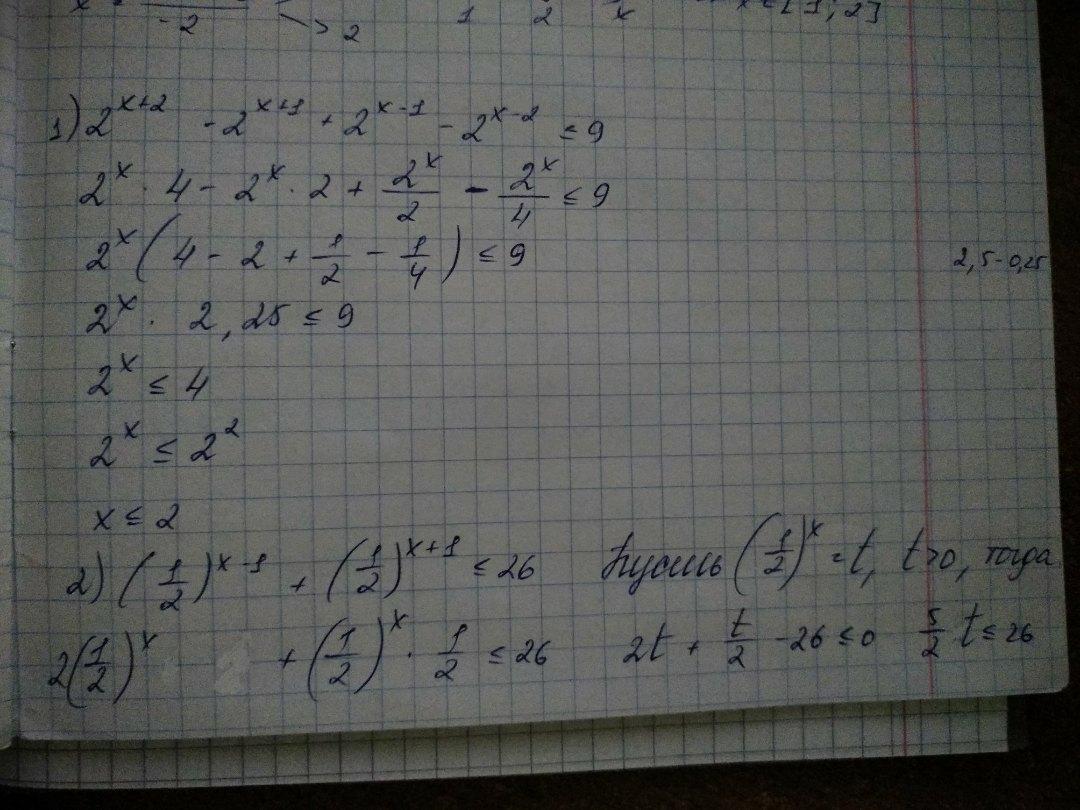 -2 2 1 2 x x=[1;2]
1) 2^(x+2) - 2^(x+1) + 2^(x-1) - 2^(x-2) ≤ 9
2^x · 4 - 2^x · 2 + 2^x/2 - 2^x/4 ≤ 9
2^x (4 - 2 + 1/2 - 1/4) ≤ 9 2,5-0,25
2^x · 2,25 ≤ 9
2^x ≤ 4
2^x ≤ 2^2
x ≤ 2
2) (1/2)^(x-1) + (1/2)^(x+1) ≤ 26 Пусть (1/2)^x = t, t>0, тогда
2(1/2)^x + (1/2)^x · 1/2 ≤ 26 2t + t/2 - 26 ≤ 0 5/2 t ≤ 26